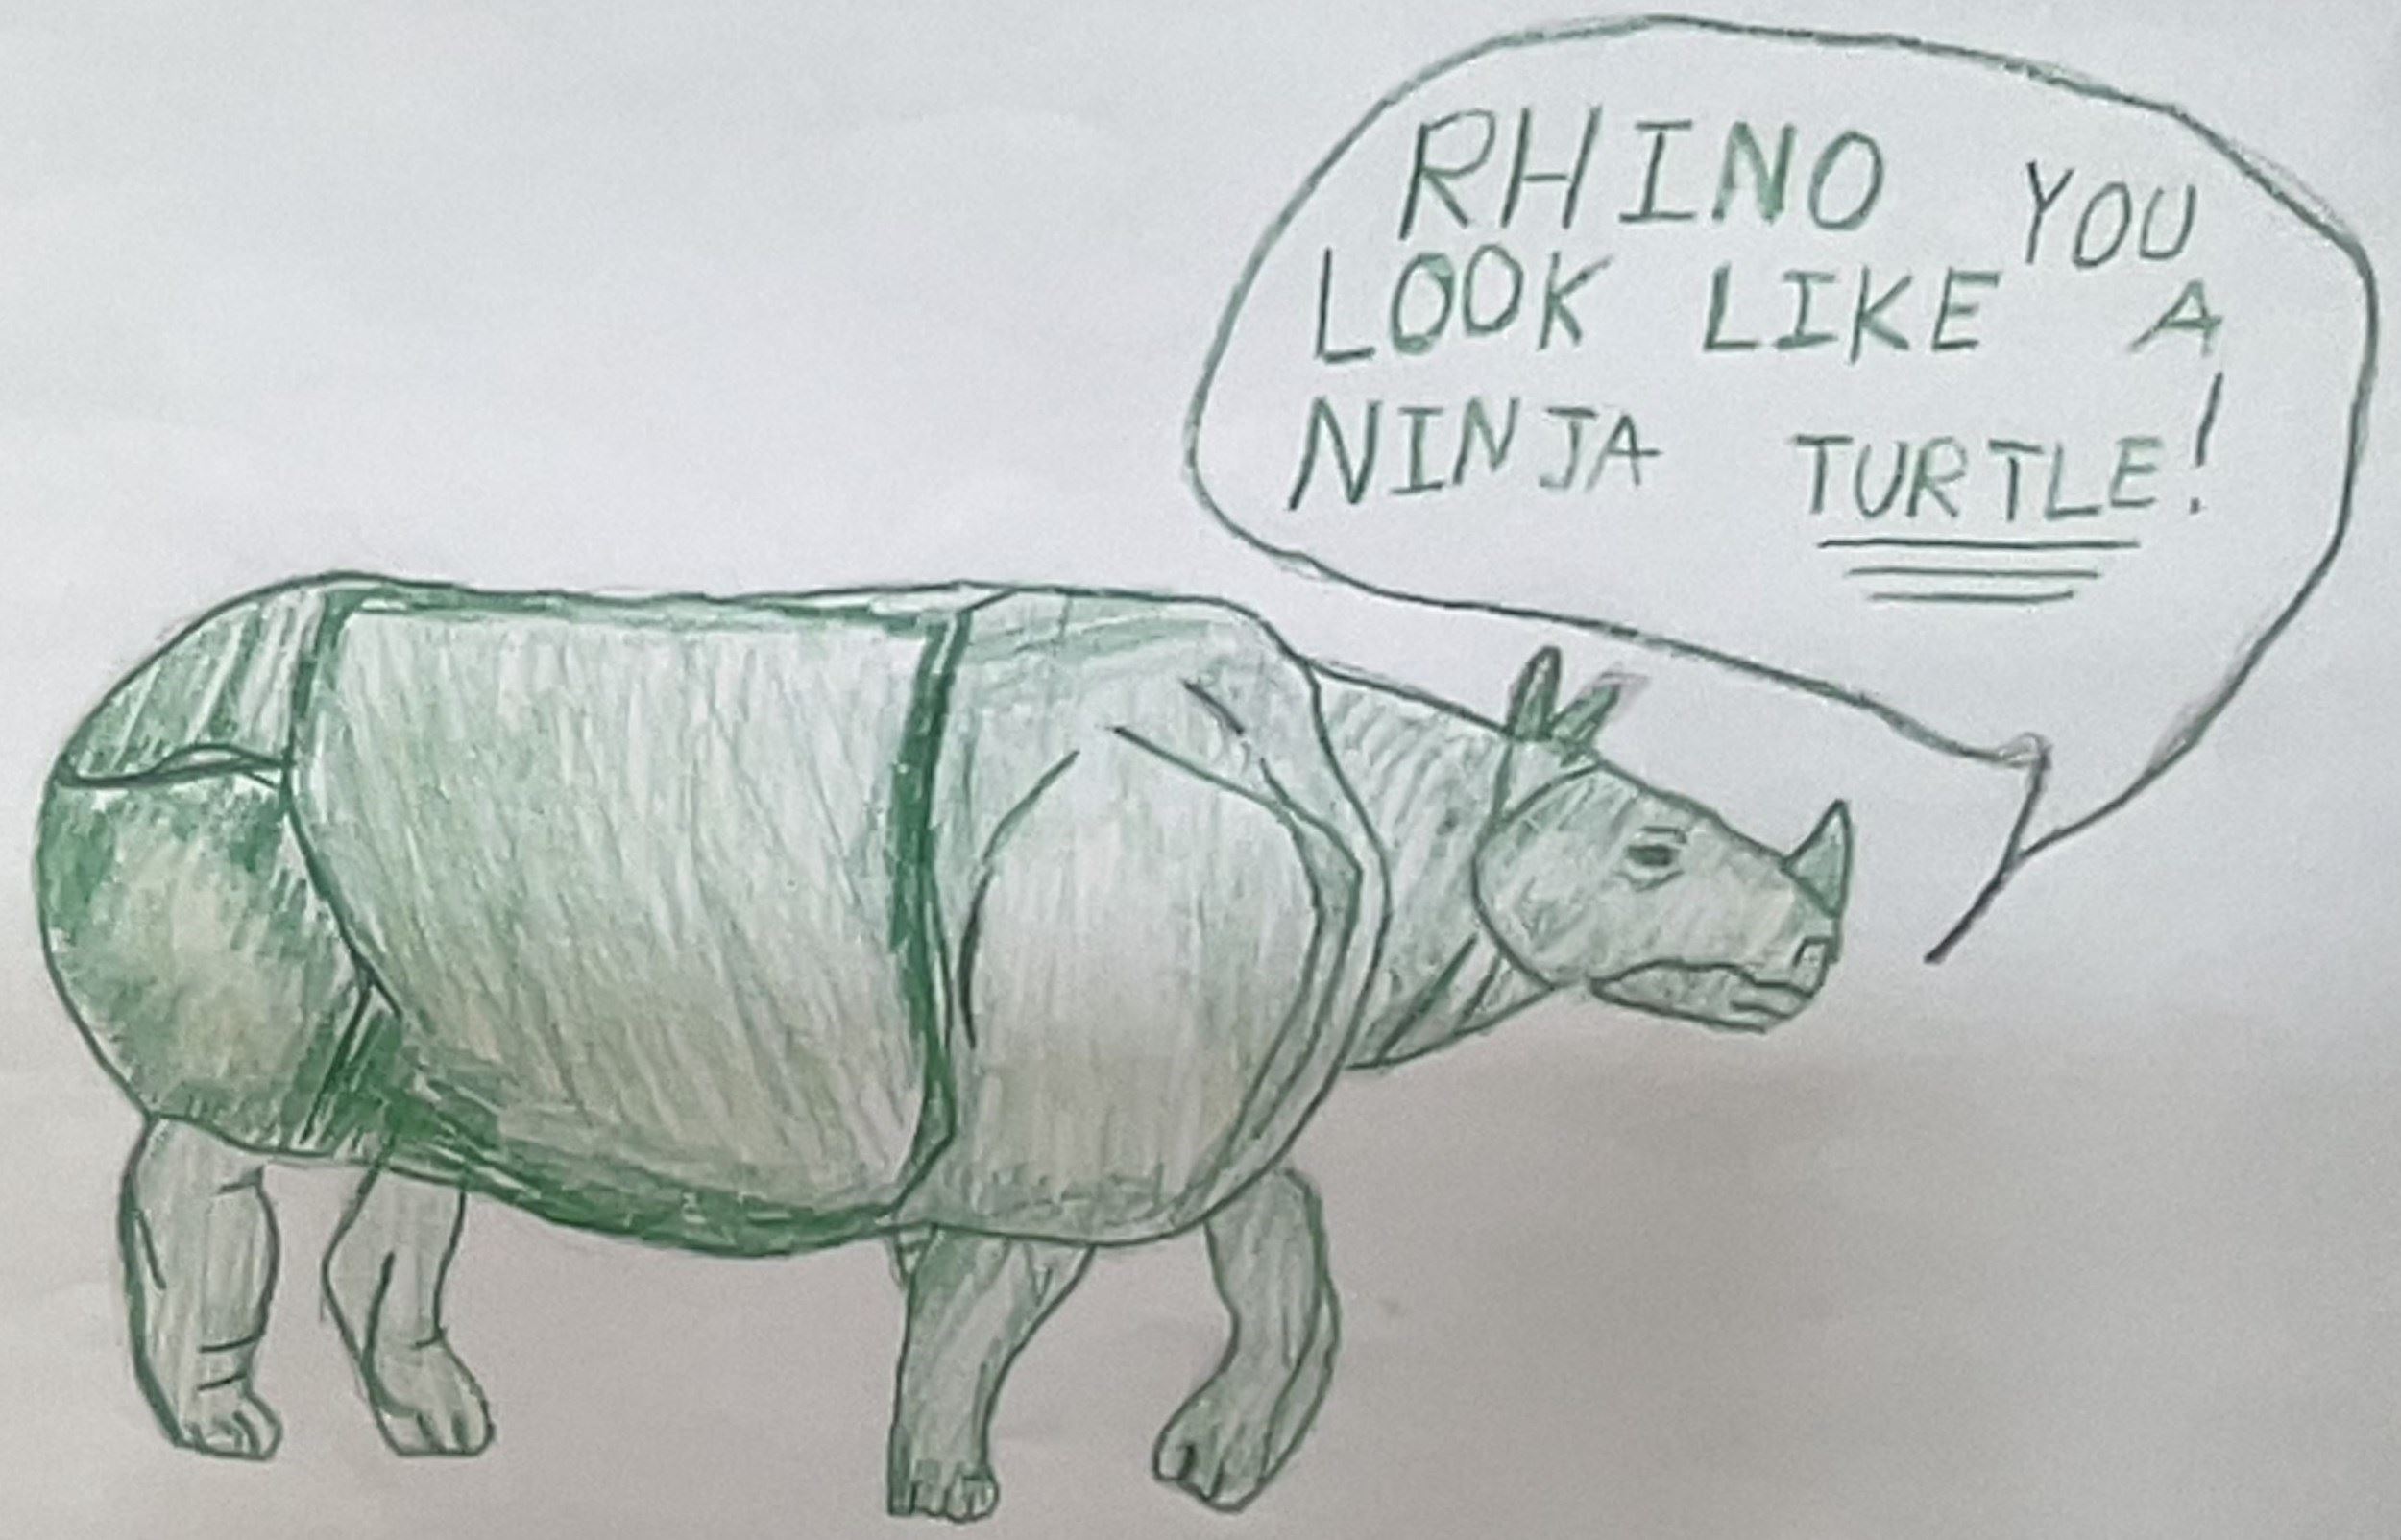 RHINO YOU
LOOK LIKE A
NINJA TURTLE!